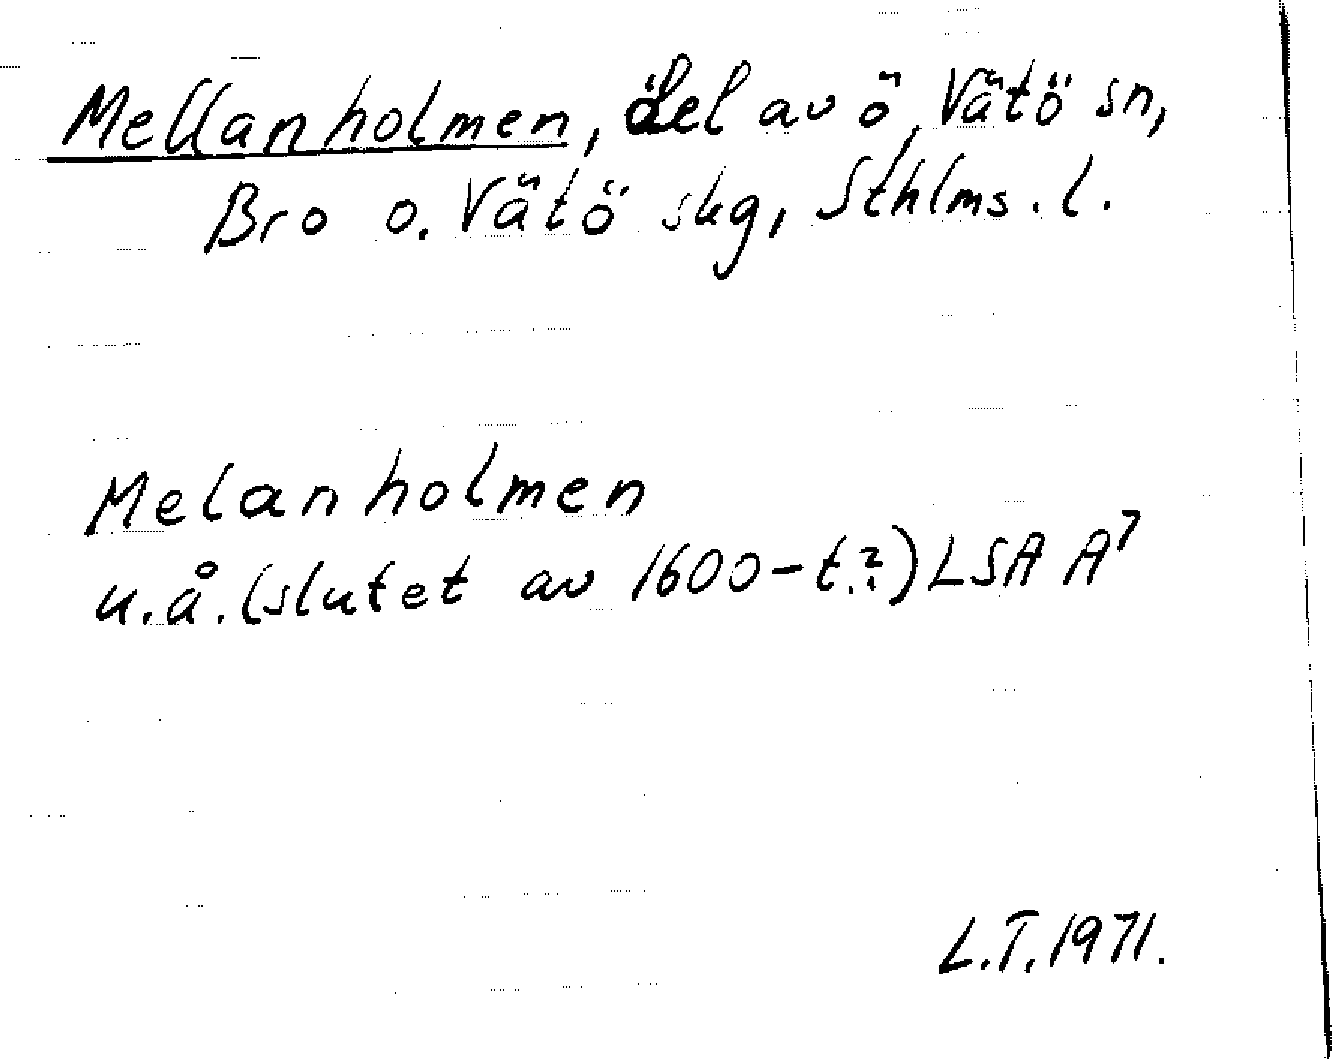 Mellanholmen, del av ö, Vätö sn,
Bro o. Vätö skg, Sthlms. l.
Melanholmen
u.å. (slutet av 1600-t.?) LSA A7
L.T. 1971.